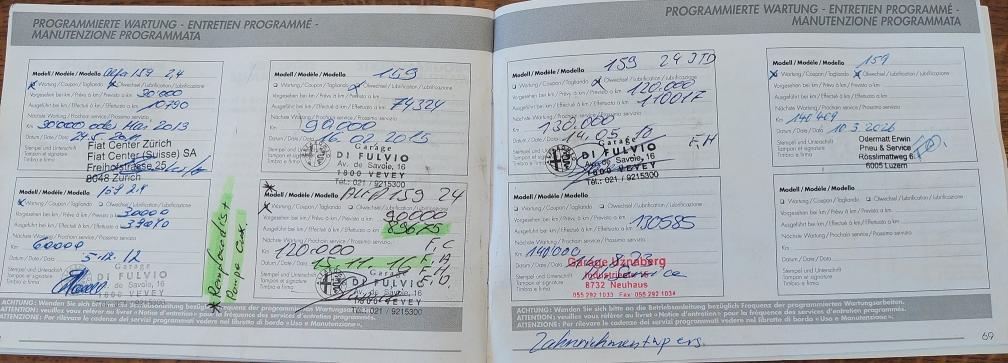 PROGRAMMIERTE WARTUNG - ENTRETIEN PROGRAMMÉ -
MANUTENZIONE PROGRAMMATA
Modell / Modèle / Modello Alfa 159 2,4
Wartung / Coupon / Tagliando Ölwechsel / Lubrification / lubrificazione
Vorgesehen bei km / Prévu à km / Previsto a km 30'000
Ausgeführt bei km / Effectué à km / Effettuato a km 10790
Nächste Wartung / Prochain service / Prossimo servizio
Km 30'000 oder Mai 2013
Datum / Date / Data
Stempel und Unterschrift
Tampon et signature
Timbro e firma
Fiat Center Zürich
Fiat Center (Suisse) SA
Freihofstrasse 25
8048 Zürich
Modell / Modèle / Modello 159 2.4
Wartung / Coupon / Tagliando Ölwechsel / Lubrification / lubrificazione
Vorgesehen bei km / Prévu à km / Previsto a km 30000
Ausgeführt bei km / Effectué à km / Effettuato a km
Nächste Wartung / Prochain service / Prossimo servizio
Km 60000
Datum / Date / Data 5.12.12
Stempel und Unterschrift
Tampon et signature
Timbro e firma
Garage
DI FULVIO
Av. de Savoie, 16
1800 VEVEY
Tél.: 021 / 9215300
Modell / Modèle / Modello 159
Wartung / Coupon / Tagliando Ölwechsel / Lubrification / lubrificazione
Vorgesehen bei km / Prévu à km / Previsto a km
Ausgeführt bei km / Effectué à km / Effettuato a km 74324
Nächste Wartung / Prochain service / Prossimo servizio
Km 90000
Datum / Date / Data 16.02.2015
Stempel und Unterschrift
Tampon et signature
Timbro e firma
Garage
DI FULVIO
Av. de Savoie, 16
1800 VEVEY
Tél.: 021 / 9215300
Modell / Modèle / Modello 159 24
Wartung / Coupon / Tagliando Ölwechsel / Lubrification / lubrificazione
Vorgesehen bei km / Prévu à km / Previsto a km 90000
Ausgeführt bei km / Effectué à km / Effettuato a km 89675
Nächste Wartung / Prochain service / Prossimo servizio
Km 120.000 F.C
Datum / Date / Data 15.11.16 F.A
F.H
Stempel und Unterschrift
Tampon et signature
Timbro e firma
Garage
DI FULVIO
Av. de Savoie, 16
1800 VEVEY
Tél.: 021 / 9215300
ACHTUNG: Wenden Sie sich bitte an die Betriebsanleitung bezüglich Frequenz der programmierten Wartungsarbeiten.
ATTENTION: veuillez vous référer au livret «Notice d'entretien» pour la fréquence des services d'entretien programmés.
ATTENZIONE: Per rilevare le cadenze dei servizi programmati vedere nel libretto di bordo «Uso e Manutenzione».
PROGRAMMIERTE WARTUNG - ENTRETIEN PROGRAMMÉ -
MANUTENZIONE PROGRAMMATA
Modell / Modèle / Modello 159 24 JTD
Wartung / Coupon / Tagliando Ölwechsel / Lubrification / lubrificazione
Vorgesehen bei km / Prévu à km / Previsto a km 120.000
Ausgeführt bei km / Effectué à km / Effettuato a km
Nächste Wartung / Prochain service / Prossimo servizio
Km 130.000
Datum / Date / Data
F.H
Stempel und Unterschrift
Tampon et signature
Timbro e firma
Garage
DI FULVIO
Av. de Savoie, 16
1800 VEVEY
Tél.: 021 / 9215300
Modell / Modèle / Modello
Wartung / Coupon / Tagliando Ölwechsel / Lubrification / lubrificazione
Vorgesehen bei km / Prévu à km / Previsto a km
Ausgeführt bei km / Effectué à km / Effettuato a km 130585
Nächste Wartung / Prochain service / Prossimo servizio
Km 140000
Datum / Date / Data
Stempel und Unterschrift
Tampon et signature
Timbro e firma
Garage Uznaberg
8732 Neuhaus
055 292 1033 Fax 055 292 1034
Modell / Modèle / Modello 159
Wartung / Coupon / Tagliando Ölwechsel / Lubrification / lubrificazione
Vorgesehen bei km / Prévu à km / Previsto a km
Ausgeführt bei km / Effectué à km / Effettuato a km
Nächste Wartung / Prochain service / Prossimo servizio
Km 140409
Datum / Date / Data 10.3.2026
Stempel und Unterschrift
Tampon et signature
Timbro e firma
Odermatt Erwin
Pneu & Service
Rösslimattweg 6
6005 Luzern
Modell / Modèle / Modello
Wartung / Coupon / Tagliando Ölwechsel / Lubrification / lubrificazione
Vorgesehen bei km / Prévu à km / Previsto a km
Ausgeführt bei km / Effectué à km / Effettuato a km
Nächste Wartung / Prochain service / Prossimo servizio
Km
Datum / Date / Data
Stempel und Unterschrift
Tampon et signature
Timbro e firma
ACHTUNG: Wenden Sie sich bitte an die Betriebsanleitung bezüglich Frequenz der programmierten Wartungsarbeiten.
ATTENTION: veuillez vous référer au livret «Notice d'entretien» pour la fréquence des services d'entretien programmés.
ATTENZIONE: Per rilevare le cadenze dei servizi programmati vedere nel libretto di bordo «Uso e Manutenzione».
69